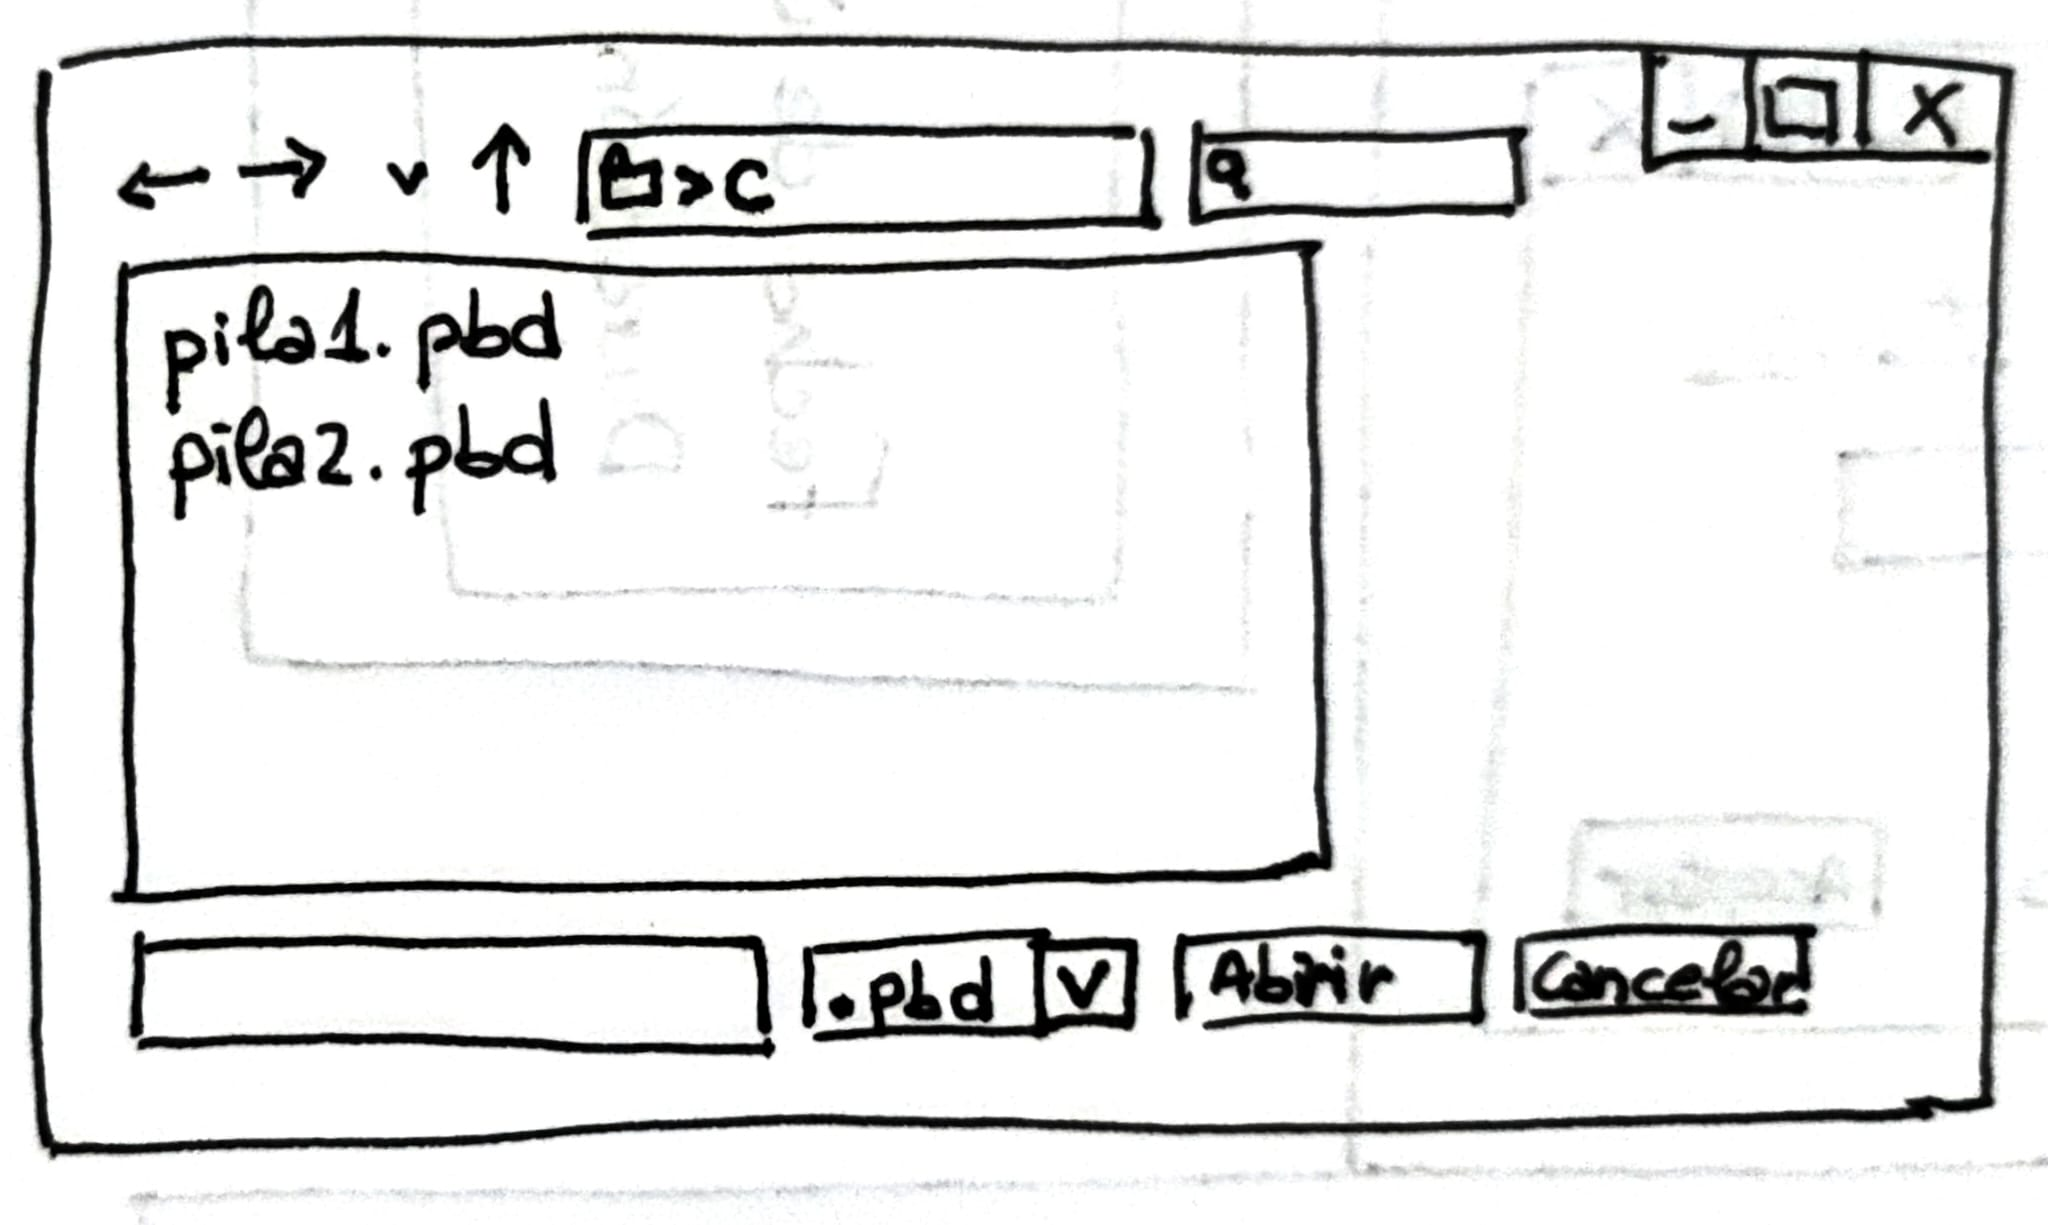 > C
pila1.pbd
pila2.pbd
.pbd V Abrir Cancelar